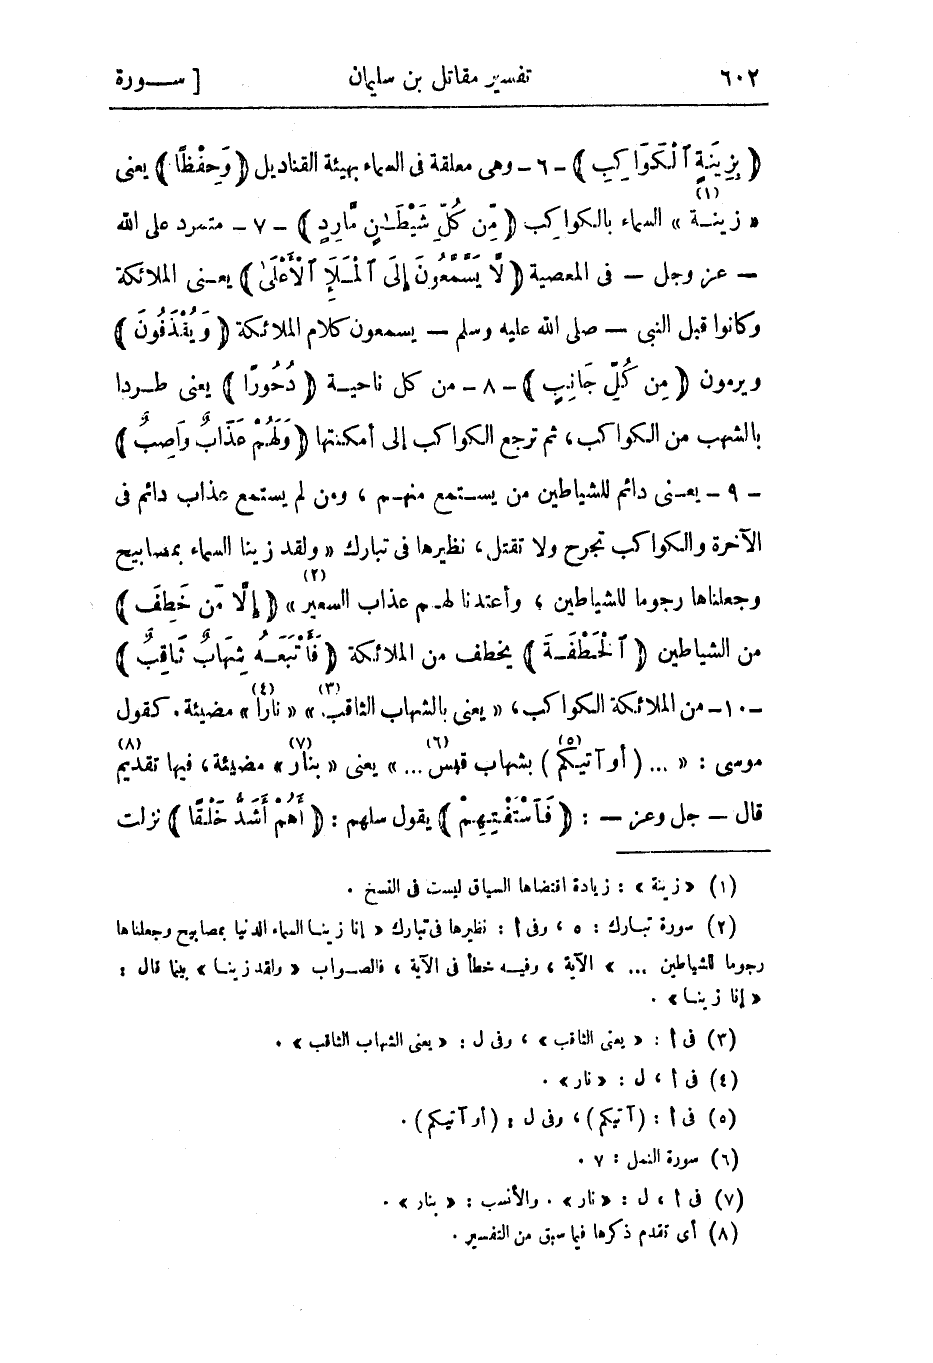 ٦٠٢ تفسير مقاتل بن سليمان [ ســورة
﴿ بِزِينَةٍ ٱلْكَوَاكِبِ ﴾ - ٦ - وهى معلقة فى السماء بهيئة القناديل ﴿ وَحِفْظًا ﴾ يعنى
« زينــة » (١) السماء بالكواكب ﴿ مِّن كُلِّ شَيْطَـٰنٍ مَّارِدٍ ﴾ - ٧ - متمرد على الله
— عز وجل — فى المعصية ﴿ لَّا يَسَّمَّعُونَ إِلَى ٱلْمَلَإِ ٱلْأَعْلَىٰ ﴾ يعـنى الملائكة
وكانوا قبل النبى — صلى الله عليه وسلم — يسمعون كلام الملائكة ﴿ وَيُقْذَفُونَ ﴾
ويرمون ﴿ مِن كُلِّ جَانِبٍ ﴾ - ٨ - من كل ناحيـة ﴿ دُحُورًا ﴾ يعنى طـردا
بالشهب من الكواكب، ثم ترجع الكواكب إلى أمكنتها ﴿ وَلَهُمْ عَذَابٌ وَاصِبٌ ﴾
- ٩ - يعـنى دائم للشياطين من يســتمع منهـم ، ومن لم يستمع عذاب دائم فى
الآخرة والكواكب تجرح ولا تقتل، نظيرها فى تبارك « ولقد زينا السماء بمصابيح
وجعلناها رجوما للشياطين ، وأعتدنا لهـم عذاب السعير » (٢) ﴿ إِلَّا مَن خَطِفَ ﴾
من الشياطين ﴿ ٱلْخَطْفَــةَ ﴾ يخطف من الملائكة ﴿ فَأَتْبَعَــهُ شِهَابٌ ثَاقِبٌ ﴾
- ١٠ - من الملائكة الكواكب، « يعنى بالشهاب الثاقب » (٣) « نارا » (٤) مضيئة. كقول
موسى : « ... ( أو آتيكم ) (٥) بشهاب قبس ... » (٦) يعنى « بنار » (٧) مضيئة، فيها تقديم (٨)
قال — جل وعز — : ﴿ فَٱسْتَفْتِهِمْ ﴾ يقول سلهم : ﴿ أَهُمْ أَشَدُّ خَلْقًا ﴾ نزلت
(١) « زينة » : زيادة اقتضاها السياق ليست فى النسخ .
(٢) سورة تبارك : ٥ ، وفى أ : نظيرها فى تبارك « إنا زينـا السماء الدنيا بمصابيح وجعلناها
رجوما للشياطين ... » الآية ، وفيـه خطأ فى الآية ، فالصـواب « ولقد زينـا » بينما قال :
« إنا زينـا » .
(٣) فى أ : « يعنى الثاقب » ، وفى ل : « يعنى الشهاب الثاقب » .
(٤) فى أ ، ل : « نار » .
(٥) فى أ : ( آتيكم )، وفى ل : ( أو آتيكم ) .
(٦) سورة النمل : ٧ .
(٧) فى أ ، ل : « نار » . والأنسب : « بنار » .
(٨) أى تقدم ذكرها فيما سبق من التفسير .